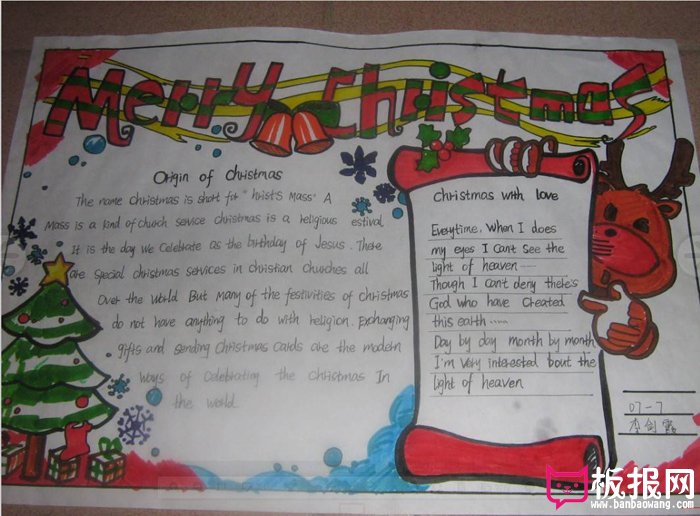 Merry Christmas
Origin of Christmas
The name Christmas is short for "hrist's Mass" A
Mass is a kind of church service christmas is a religious estival
It is the day we celebrate as the birthday of Jesus. There
are special christmas services in christian churches all
Over the world But many of the festivities of christmas
do not have anything to do with religion. Exchanging
gifts and sending Christmas cards are the modern
ways of celebrating the Christmas In
the world
Christmas with love
Everytime. When I does
my eyes I can't see the
light of heaven
Though I can't deny there's
God who have created
this earth .....
Day by day month by month
I'm very interested bout the
light of heaven
07-7
李剑霞
板报网
www.banbaowang.com